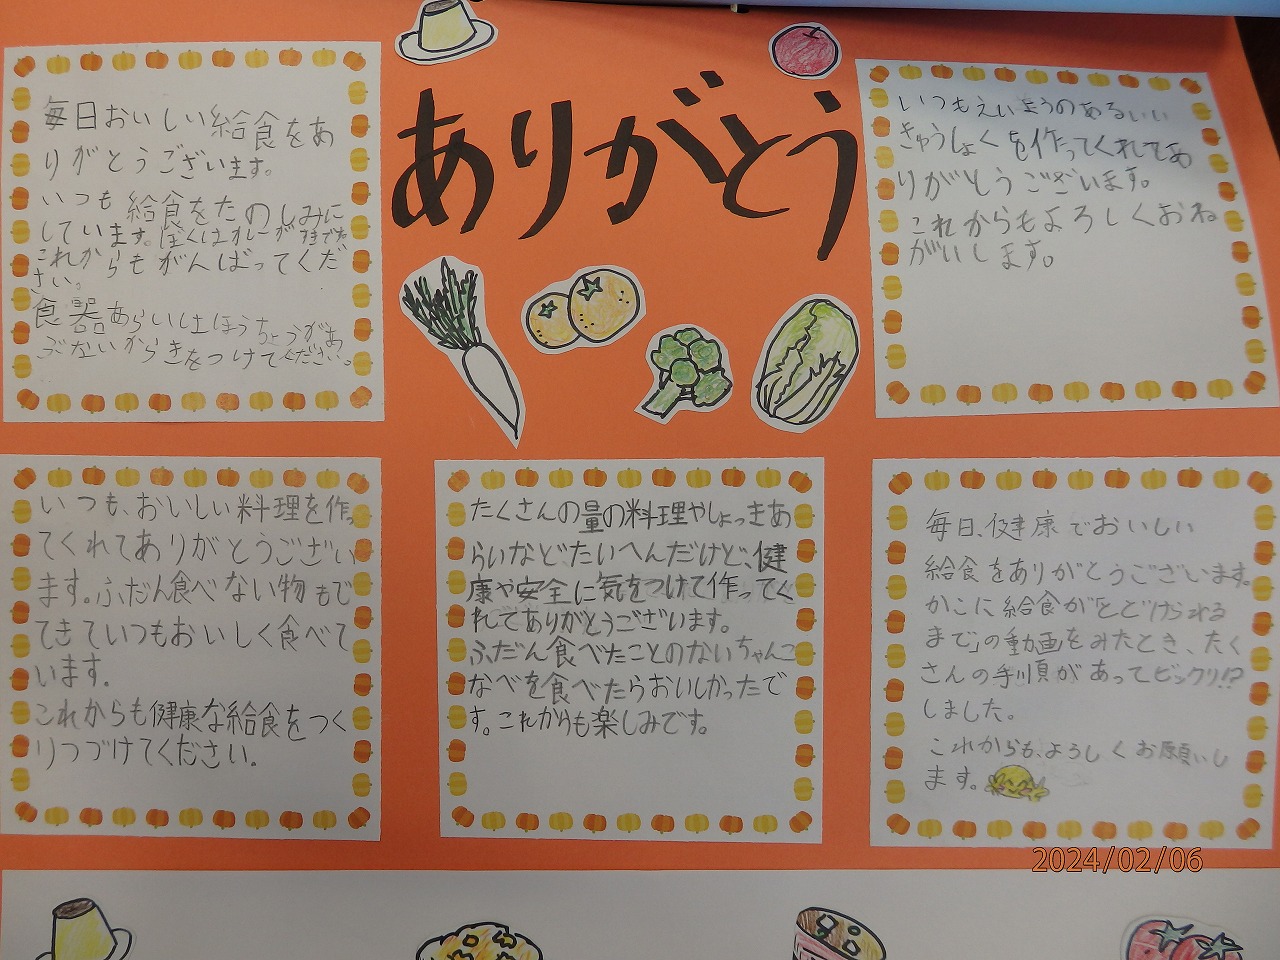 ありがとう
毎日おいしい給食をあ
りがとうございます。
いつも給食をたのしみに
しています。ぼくはカレーがすきです。
これからもがんばってくだ
さい。
食器あらいはほうちょうがあ
ぶないからきをつけてください。
いつもえいようのあるいい
きゅうしょくを作ってくれてあ
りがとうございます。
これからもよろしくおね
がいします。
いつも、おいしい料理を作っ
てくれてありがとうござい
ます。ふだん食べない物もじ
てきていつもおいしく食べて
います。
これからも健康な給食をつく
りつづけてください。
たくさんの量の料理やしょっきあ
らいなど、たいへんだけど、健
康や安全に気をつけて作ってく
れてありがとうございます。
ふだん食べたことのないちゃんこ
なべを食べたらおいしかったで
す。これからも楽しみです。
毎日、健康でおいしい
給食をありがとうございます。
かこに給食が「とどけられる
まで」の動画をみたとき、たく
さんの手順があってビックリ!?
しました。
これからも、よろしくお願いし
ます。
2024/02/06